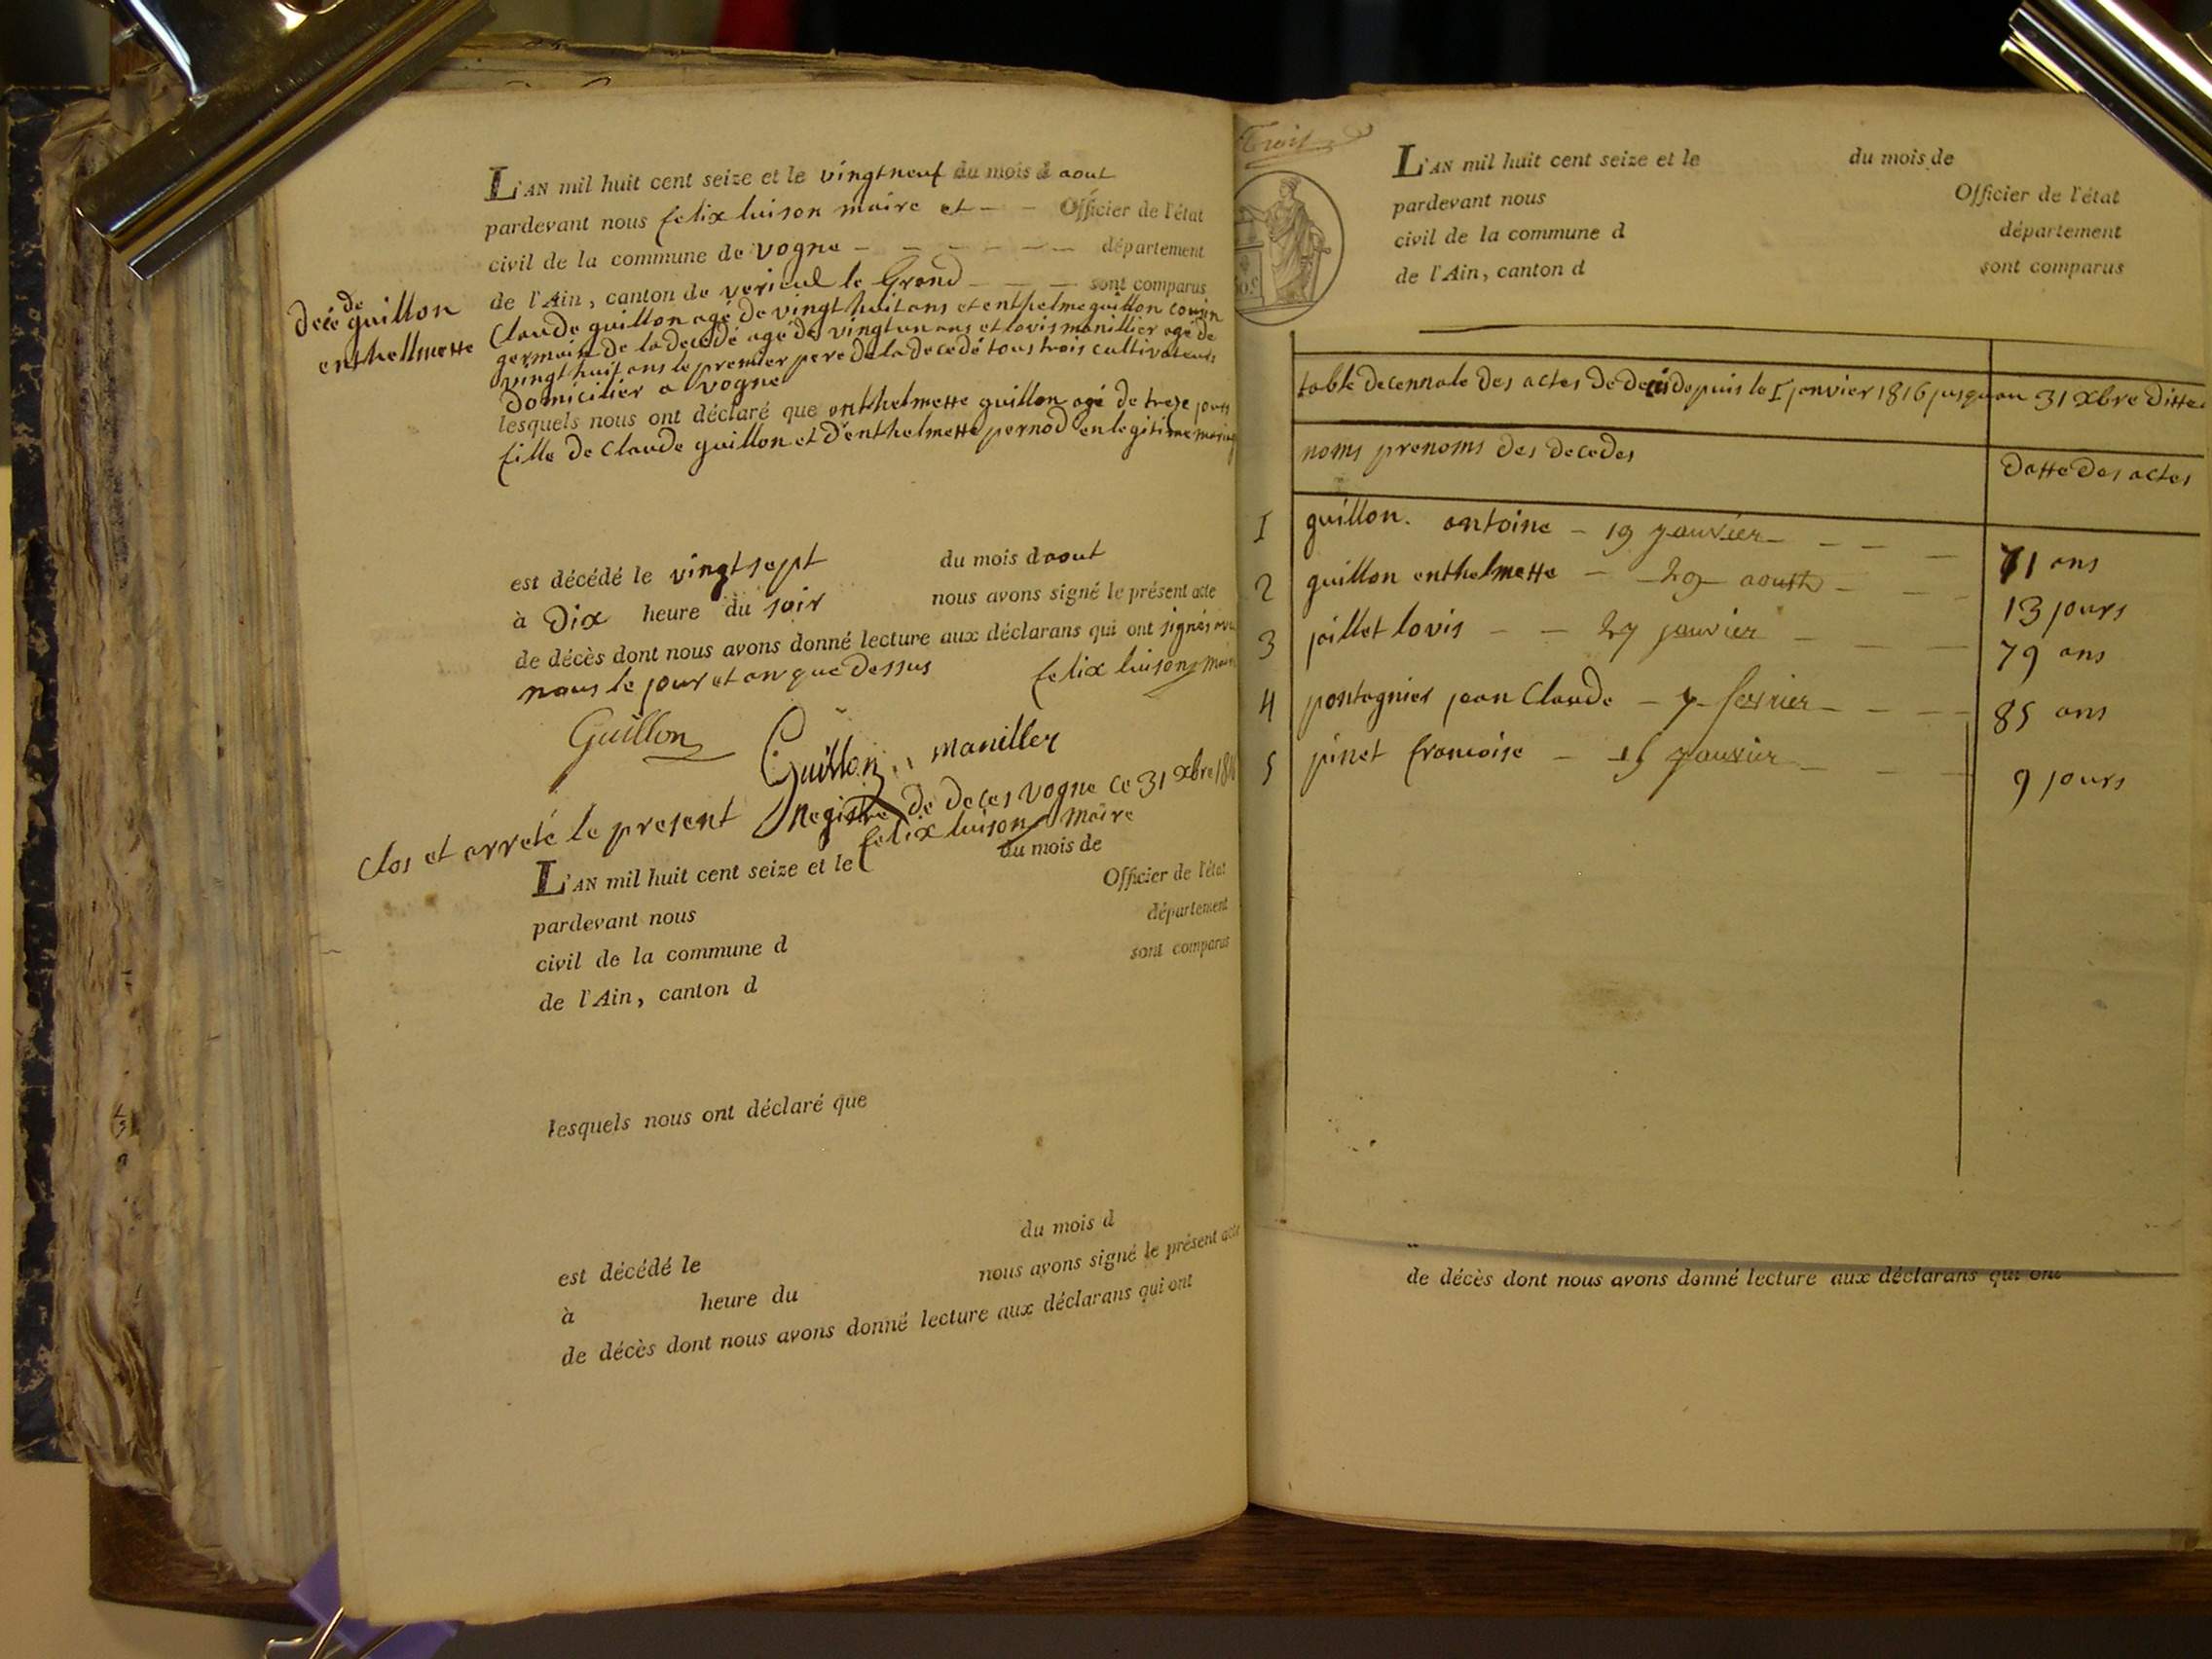 L'AN mil huit cent seize et le vingt neuf du mois d aout
pardevant nous felix luison maire et - - Officier de l'état
civil de la commune de vogne - - - - - - département
de l'Ain, canton de verieul le Grand - - - sont comparus
Claude guillon agé de vingt huit ans et enthelme guillon cousin
germain de la decedé agé de vingt un ans et lovis manillier agé de
vingt huit ans le premier pere de la decedé tous trois cultivateurs
Domicilier a vogne
lesquels nous ont déclaré que enthelmette guillon agé de treze jours
fille de Claude guillon et d'enthelmette pernod en legitime mariag
de
Decé guillon
enthellmette
est décédé le vingt sept du mois d aout
à Dix heure du soir nous avons signé le présent acte
de décès dont nous avons donné lecture aux déclarans qui ont signés
nous le jour et an que Dessus felix luison
Guillon Guillon maniller
Clos et arreté le present Registre de deces vogne ce 31 xbre
felix luison maire
L'AN mil huit cent seize et le du mois de
pardevant nous Officier de l'état
civil de la commune d département
de l'Ain, canton d sont comparus
lesquels nous ont déclaré que
est décédé le du mois d
à heure du nous avons signé le présent acte
de décès dont nous avons donné lecture aux déclarans qui ont
L'AN mil huit cent seize et le du mois de
pardevant nous Officier de l'état
civil de la commune d département
de l'Ain, canton d sont comparus
table decennale des actes de decés depuis le I janvier 1816 jusqu au 31 xbre Ditte
noms prenoms des decedes datte des actes
1 guillon. antoine - 19 janvier - - - 71 ans
2 guillon enthelmette - 29 aoust - - - 13 jours
3 juillet lovis - - 27 janvier - - - 79 ans
4 pontagnier jean Claude - 7 fevrier - - - 85 ans
5 pinet francoise - 15 janvier - - - 9 jours
de décès dont nous avons donné lecture aux déclarans qui ont